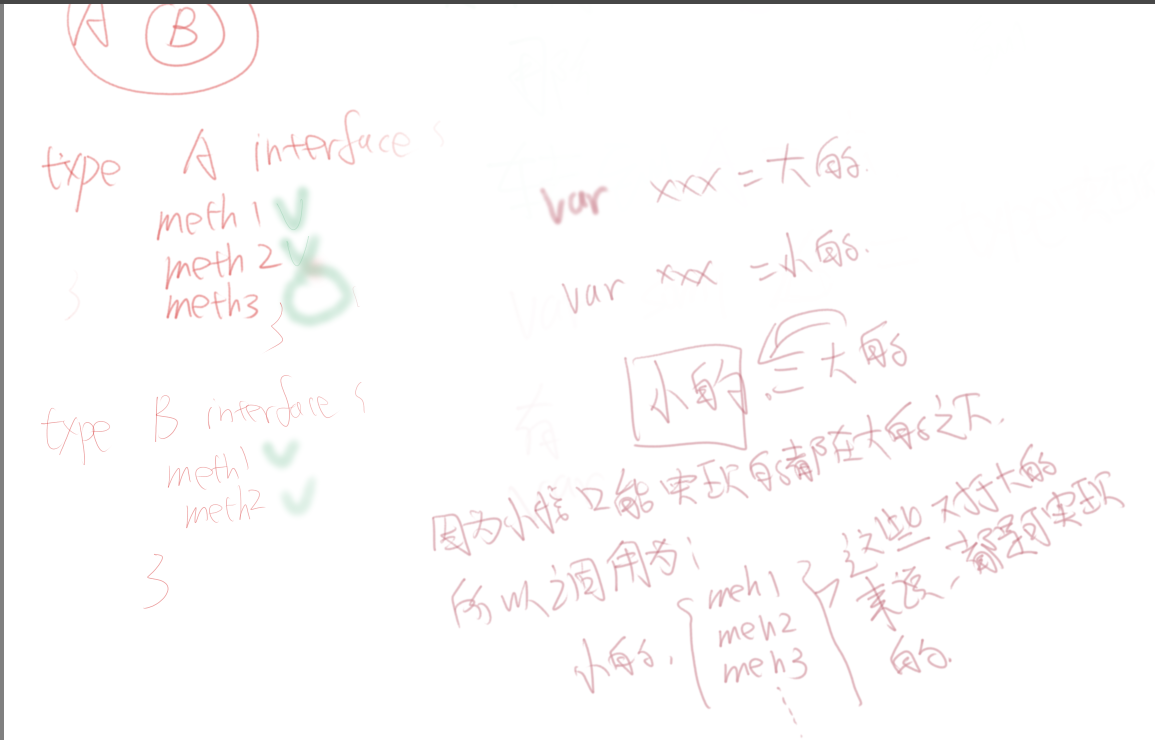 A B
type A interface {
meth 1 V
meth 2 V
meth3
}
}
type B interface {
meth1 V
meth2 V
}
var xxx = 大的.
var xxx = 小的.
小的 = 大的
因为小接口能实现的都在大的之下.
所以调用为;
小的. { meh1
meh2
meh3
}
这些对于大的
来说, 都是可实现
的.